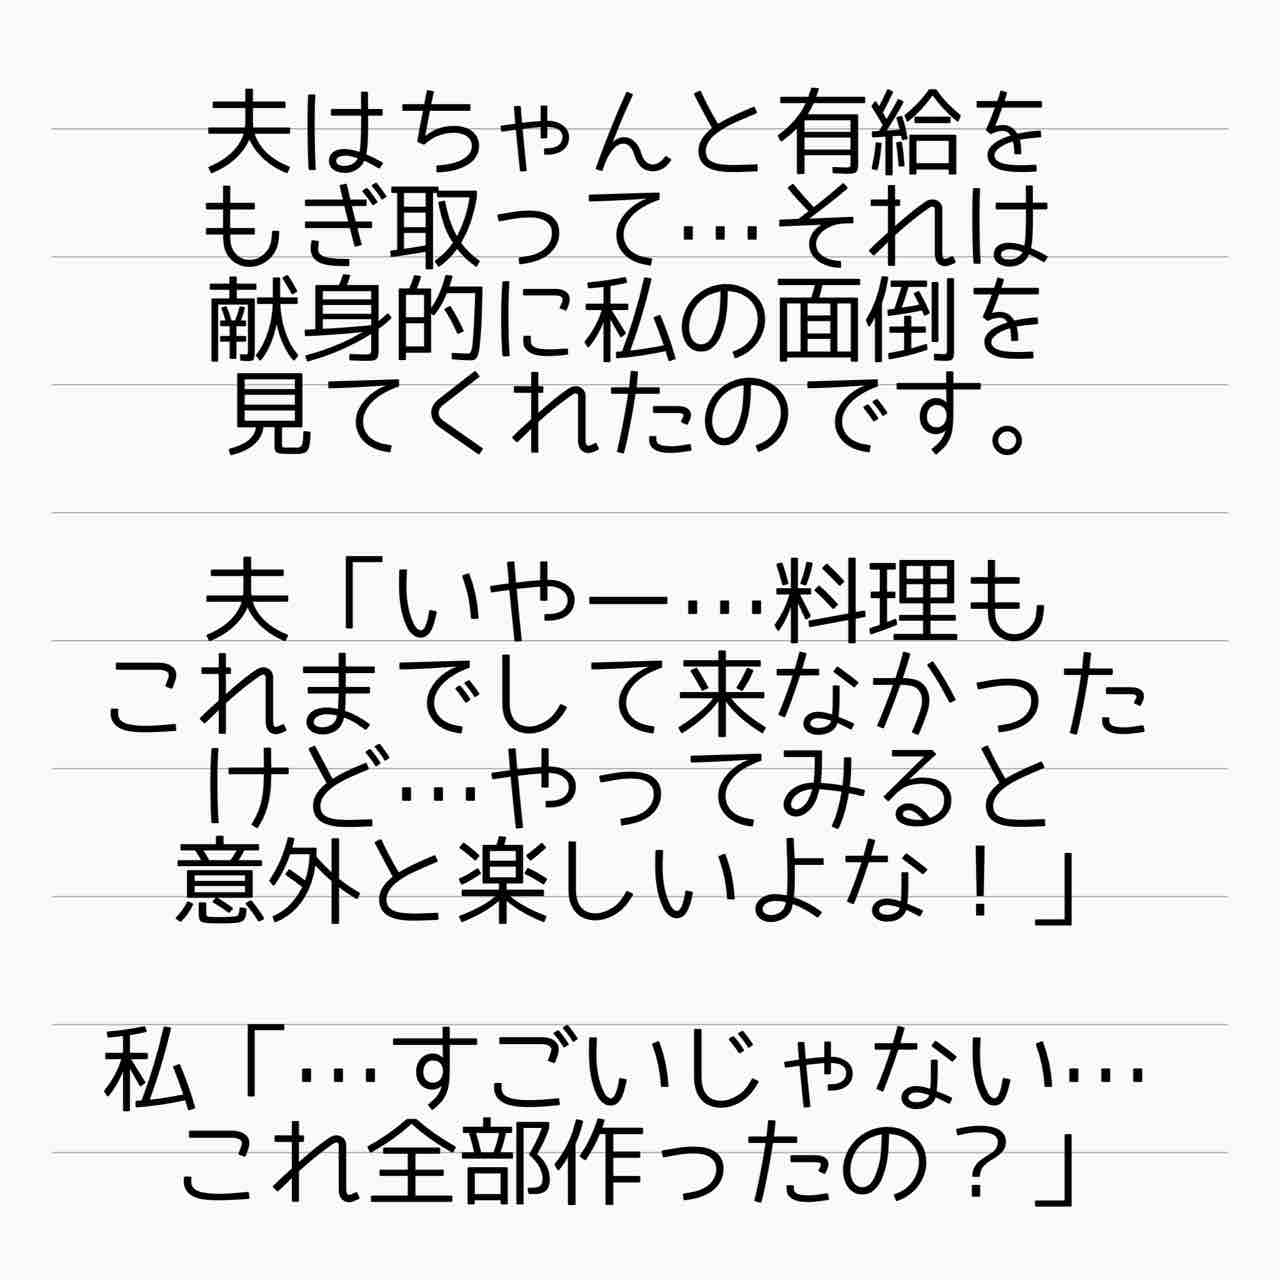 夫はちゃんと有給を
もぎ取って…それは
献身的に私の面倒を
見てくれたのです。
夫「いやー…料理も
これまでして来なかった
けど…やってみると
意外と楽しいよな！」
私「…すごいじゃない…
これ全部作ったの？」